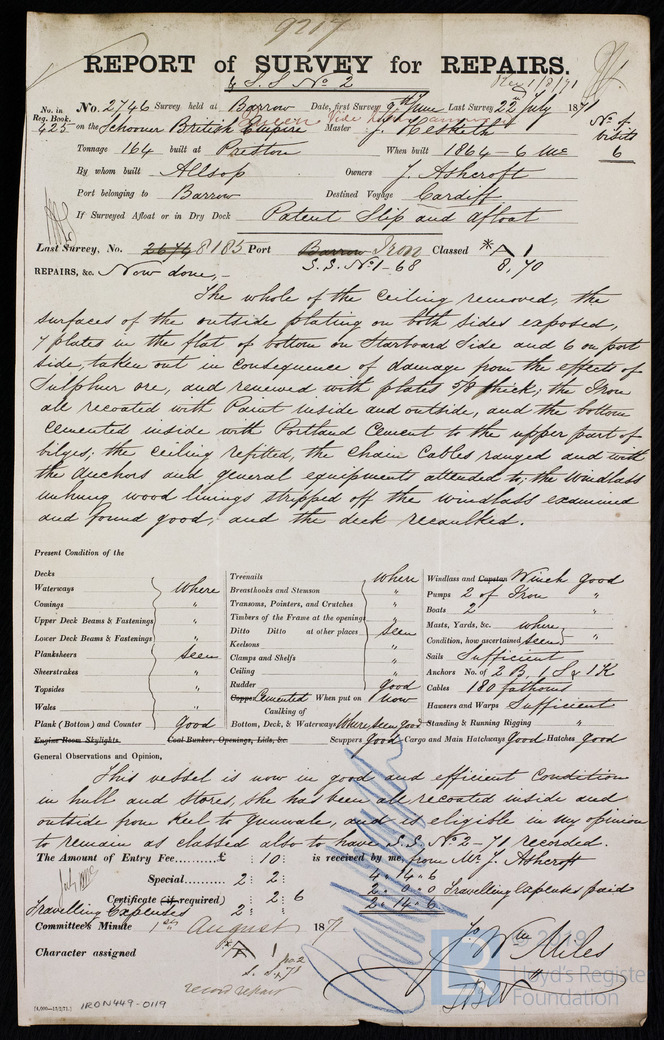 9217
REPORT of SURVEY for REPAIRS.
& S.S. No 2
No. in Reg. Book. No. 2746 Survey held at Barrow Date, first Survey 9th June Last Survey 22 July 1871
425 on the Schooner British Empire Master J. Hesketh
No of visits 6
Tonnage 164 built at Preston When built 1864 - 6 mo
By whom built Allsop Owners J. Ashcroft
Port belonging to Barrow Destined Voyage Cardiff
If Surveyed Afloat or in Dry Dock Patent Slip and afloat
Last Survey, No. 2674 8185 Port Barrow Iron Classed *A 1
S.S. No 1-68 8,70
REPAIRS, &c. Now done,-
The whole of the Ceiling removed, the
surfaces of the outside plating on both sides exposed,
7 plates in the flat of bottom on Starboard Side and 6 on port
side, taken out in consequence of damage from the effects of
Sulphur ore, and renewed with plates 5/8 thick; the Iron
all recoated with Paint inside and outside, and the bottom
Cemented inside with Portland Cement to the upper part of
bilges; the Ceiling refitted, the Chain Cables ranged and with
the Anchors and general equipments attended to; the windlass
unhung wood linings stripped off the windlass examined
and found good; and the deck recaulked.
Present Condition of the
Decks
Waterways where
Comings "
Upper Deck Beams & Fastenings "
Lower Deck Beams & Fastenings "
Planksheers seen
Sheerstrakes "
Topsides "
Wales "
Plank (Bottom) and Counter Good
Engine Room Skylights, Coal Bunker, Openings, Lids, &c.
Treenails where
Breasthooks and Stemson "
Transoms, Pointers, and Crutches "
Timbers of the Frame at the openings "
Ditto Ditto at other places seen
Keelsons "
Clamps and Shelfs "
Ceiling "
Rudder good
Copper Cemented When put on Now
Caulking of
Bottom, Deck, & Waterways Where seen good
Scuppers Good Cargo and Main Hatchways Good Hatches good
Windlass and Capstan Winch good
Pumps 2 of Iron "
Boats 2 "
Masts, Yards, &c. where
Condition, how ascertained seen "
Sails Sufficient
Anchors No. of 2 B, 1 S & 1 K
Cables 180 fathoms
Hawsers and Warps Sufficient
Standing & Running Rigging "
General Observations and Opinion,
This vessel is now in good and efficient Condition
in hull and Stores, she has been all recoated inside and
outside from keel to gunwale, and is eligible in my opinion
to remain as classed also to have S.S. No 2-71 recorded.
The Amount of Entry Fee..........£ : 10 : is received by me, from Mr J. Ashcroft
Special.......... 2 : 2 : 4. 14. 6
Certificate (if required) : 2 : 6 2. 0. 0 Travelling expenses paid
Travelling Expenses 2 : : 2. 14. 6
Committee's Minute 1st August 1871
Character assigned *A 1
S.S. No 2 71
record report
Jo Wm Miles
[4,000—13/2/71.]
IRON449-0119
© 2019
Lloyd's Register
Foundation